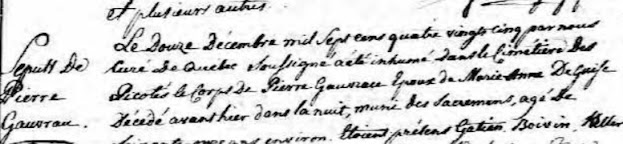 et plusieurs autres.
Le Douze Décembre mil Sept cens quatre vingt cinq par nous
Sepult De Curé De Quebec Soussigné a été inhumé dans le Cimetière Des
Pierre Picotés le Corps de Pierre Gauvreau Epoux de Marie Anne De Guise
Gauvrau. Décédé avant hier dans la nuit, muni des Sacremens, agé De
ans environ. Etoient présens Gatien, Boivin,